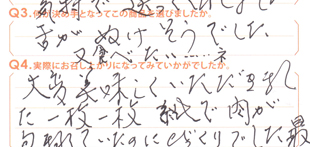 Q3.何が決め手となってこの商品を選びましたか。
舌がぬけそうでした
又食べたい……ネ
Q4.実際にお召し上がりになってみていかがでしたか。
大変美味しくいただきまし
た一枚一枚 紙で肉が
包まれていたのにビックリでした最